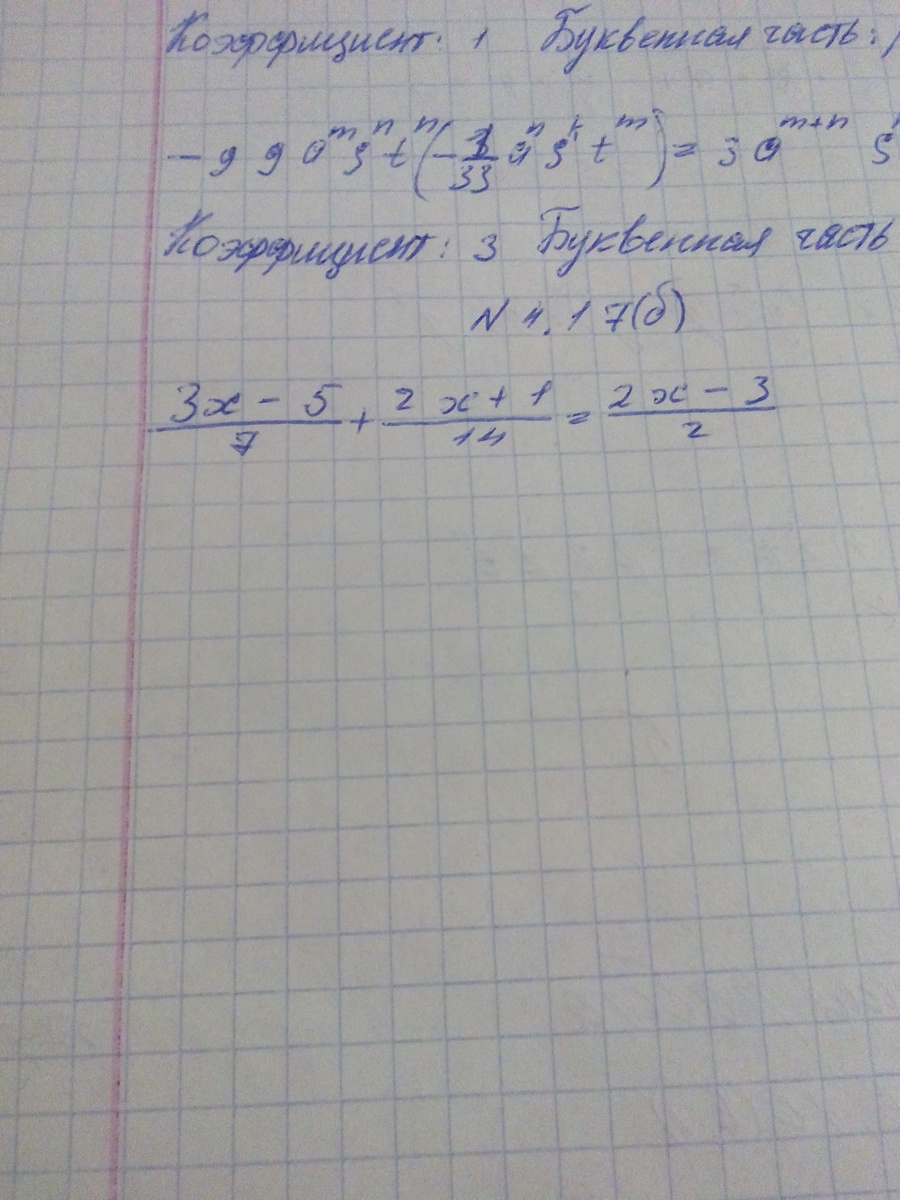 Коэффициент: 1 Буквенная часть:
-99a^m s^n t^n(-1/33 a^n s^k t^m) = 3a^{m+n} s
Коэффициент: 3 Буквенная часть
N 4.17(б)
(3x - 5)/7 + (2x + 1)/14 = (2x - 3)/2